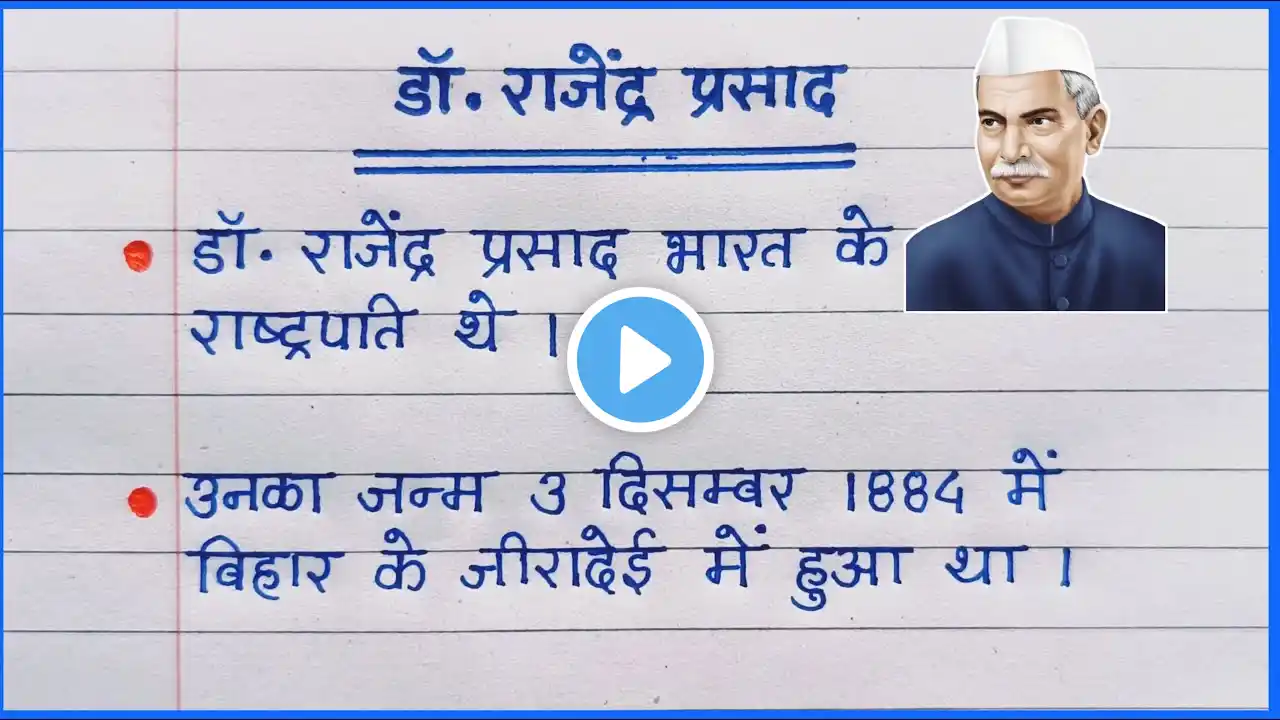 डॉ. राजेंद्र प्रसाद
डॉ. राजेंद्र प्रसाद भारत के
राष्ट्रपति थे ।
उनका जन्म 3 दिसम्बर 1884 में
बिहार के जीरादेई में हुआ था ।